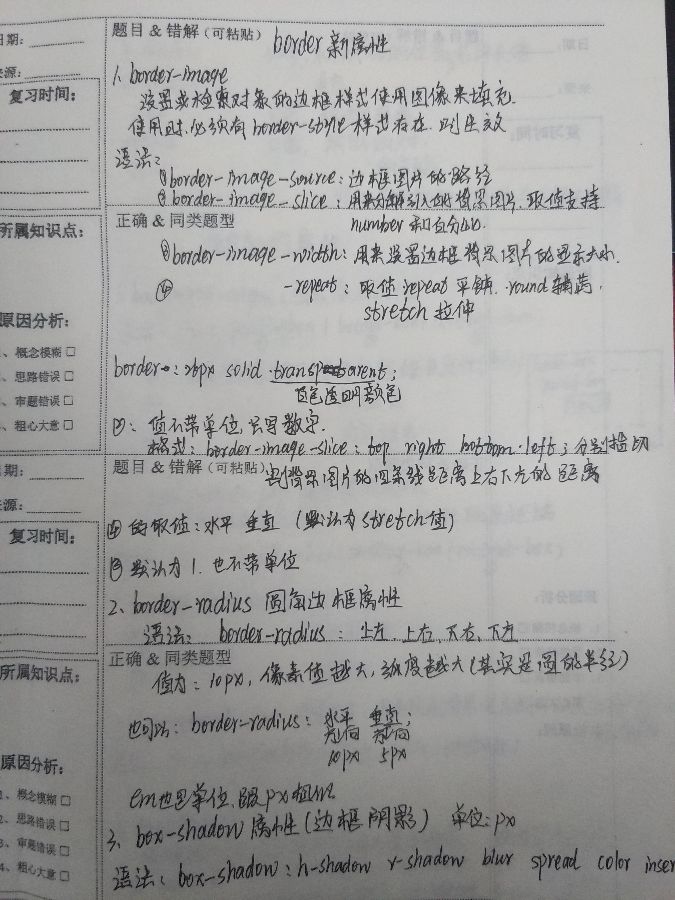 日期：
题目 & 错解（可粘贴） border 新属性
来源：
1. border-image
复习时间：
设置或检索对象的边框样式使用图像来填充.
使用时.必须有 border-style 样式存在. 则生效
语法：
① border-image-source：边框图片的路径
② border-image-slice：用来分解引入的背景图片. 取值支持
正确 & 同类题型
number 和百分比.
所属知识点：
③ border-image-width：用来设置边框背景图片的显示大小.
④ -repeat：取值 repeat 平铺. round 铺满,
stretch 拉伸
原因分析：
1、概念模糊 □
2、思路错误 □
3、审题错误 □
4、粗心大意 □
border: 26px solid transparent;
透明颜色
②：值不带单位, 只写数字.
格式：border-image-slice：top right bottom left；分别指切
日期：
题目 & 错解（可粘贴）
割背景图片的四条线距离上右下左的距离
来源：
④ 的取值：水平 垂直（默认为 stretch 值）
复习时间：
③ 默认为 1. 也不带单位
2、border-radius 圆角边框属性
语法： border-radius：上左、上右、下右、下左
正确 & 同类题型
值为：10px，像素值越大，弧度越大（其实是圆的半径）
所属知识点：
也可以：border-radius：水平 垂直；
方向 方向
10px 5px
原因分析：
1、概念模糊 □
2、思路错误 □
3、审题错误 □
4、粗心大意 □
em也是单位, 跟px相似
3、box-shadow 属性（边框阴影） 单位：px
语法：box-shadow：h-shadow v-shadow blur spread color inser